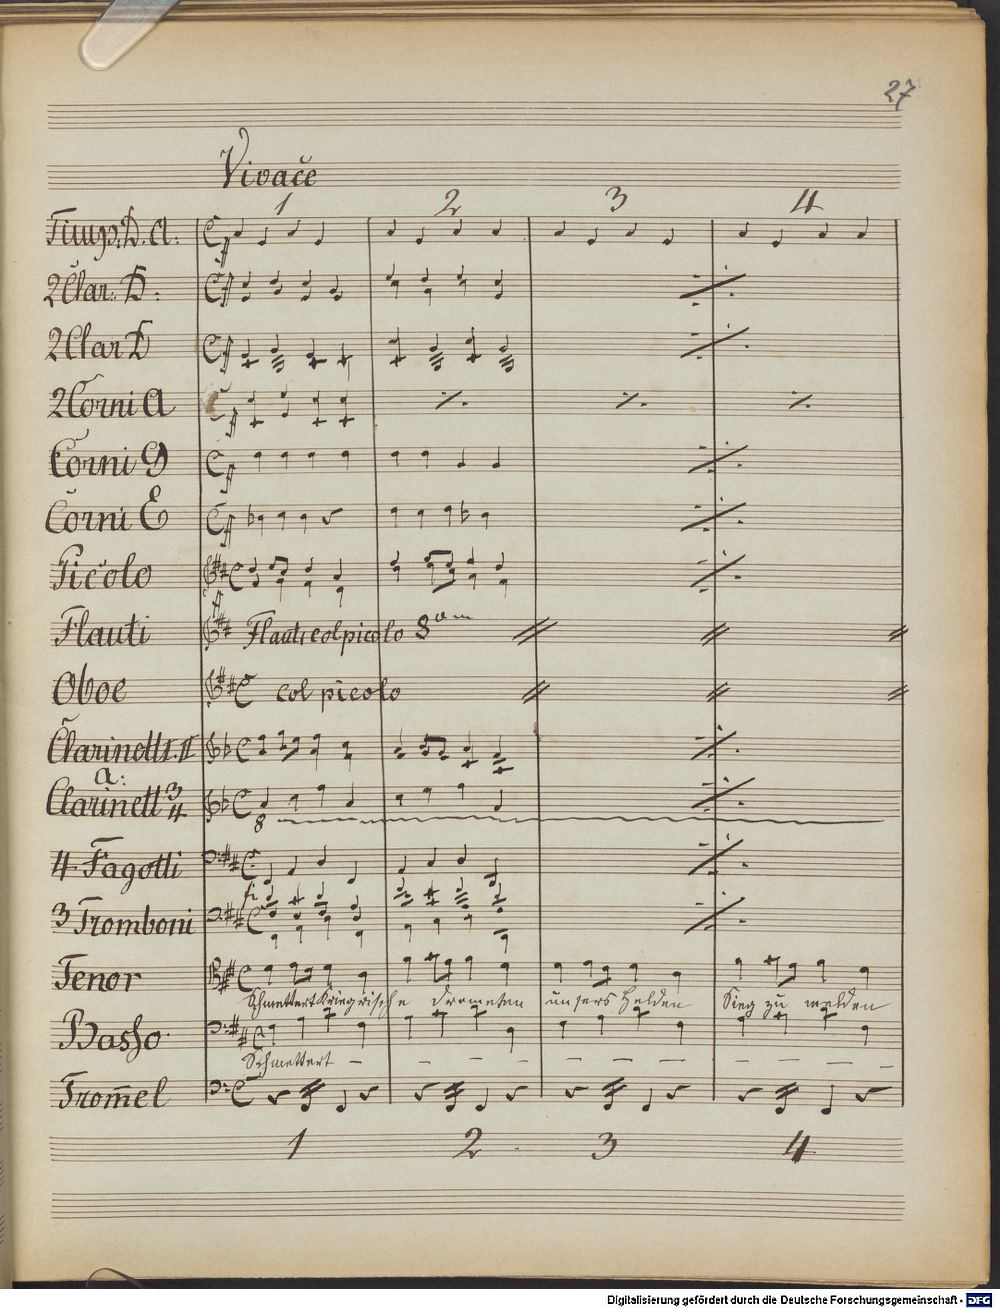 27
Vivače
1 2 3 4
Timp. D. A:
2 Clar: D:
2 Clar D
2 Corni A
Corni D
Corni E
Picolo
Flauti Flauti col picolo 8
Oboe col picolo
Clarinetti I. II
a:
Clarinett 3 4
8
4 Fagotti
3 Tromboni
Tenor
Schmettert Kriegrische Drometen unsers Helden Sieg zu melden
Basso
Schmettert
Trom̄el
1 2 3 4
Digitalisierung gefördert durch die Deutsche Forschungsgemeinschaft - DFG